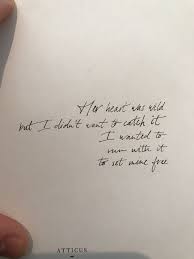 Her heart was wild
but I didn't want to catch it
I wanted to
run with it
to set mine free
ATTICUS